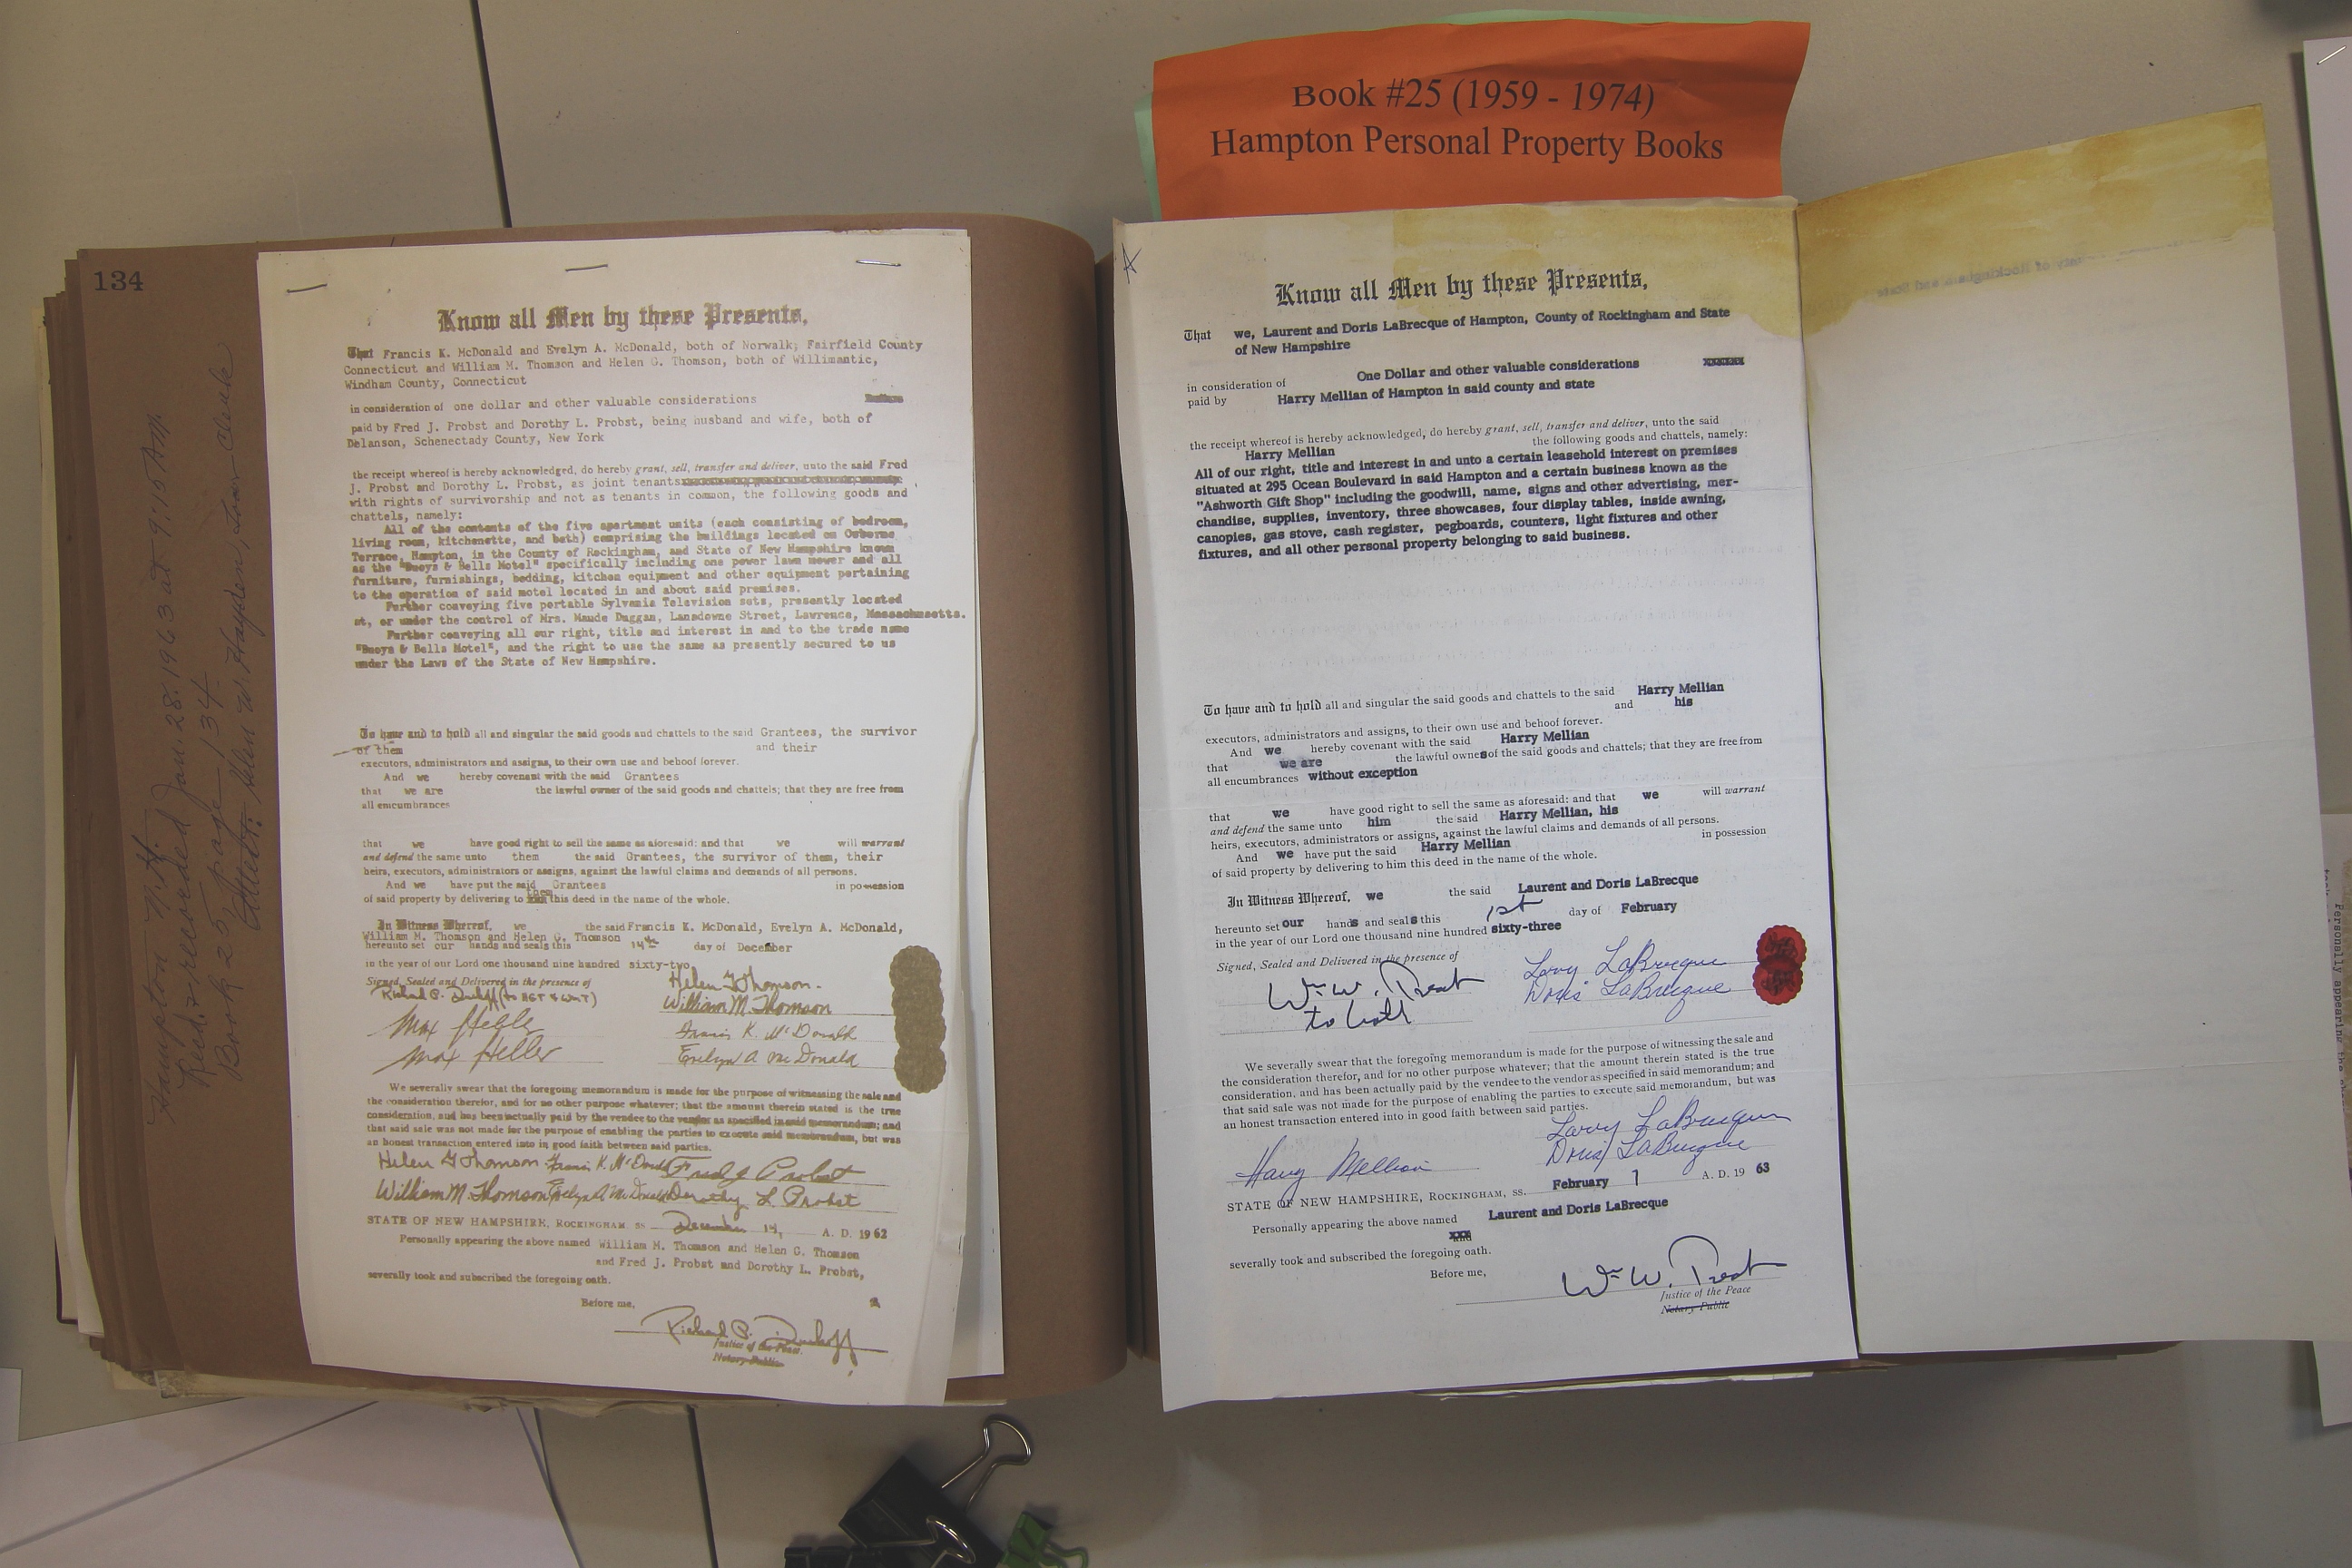 Book #25 (1959 - 1974)
Hampton Personal Property Books
134
Hampton N.H.
Recd. & recorded Jan. 28. 1963 at 9:15 A.M.
Book 25, page 134
Attest: Helen W Hayden, Town Clerk
Know all Men by these Presents,
That Francis K. McDonald and Evelyn A. McDonald, both of Norwalk; Fairfield County
Connecticut and William M. Thomson and Helen G. Thomson, both of Willimantic,
Windham County, Connecticut
in consideration of one dollar and other valuable considerations
paid by Fred J. Probst and Dorothy L. Probst, being husband and wife, both of
Delanson, Schenectady County, New York
the receipt whereof is hereby acknowledged, do hereby grant, sell, transfer and deliver, unto the said Fred
J. Probst and Dorothy L. Probst, as joint tenants
with rights of survivorship and not as tenants in common, the following goods and
chattels, namely:
All of the contents of the five apartment units (each consisting of bedroom,
living room, kitchenette, and bath) comprising the buildings located on Osborne
Terrace, Hampton, in the County of Rockingham, and State of New Hampshire known
as the "Buoys & Bells Motel" specifically including one power lawn mower and all
furniture, furnishings, bedding, kitchen equipment and other equipment pertaining
to the operation of said motel located in and about said premises.
Further conveying five portable Sylvania Television sets, presently located
at, or under the control of Mrs. Maude Duggan, Lansdowne Street, Lawrence, Massachusetts.
Further conveying all our right, title and interest in and to the trade name
"Buoys & Bells Motel", and the right to use the same as presently secured to us
under the Laws of the State of New Hampshire.
To have and to hold all and singular the said goods and chattels to the said Grantees, the survivor
of them and their
executors, administrators and assigns, to their own use and behoof forever.
And we hereby covenant with the said Grantees
that we are the lawful owner of the said goods and chattels; that they are free from
all encumbrances
that we have good right to sell the same as aforesaid: and that we will warrant
and defend the same unto them the said Grantees, the survivor of them, their
heirs, executors, administrators or assigns, against the lawful claims and demands of all persons.
And we have put the said Grantees in possession
of said property by delivering to them this deed in the name of the whole.
In Witness Whereof, we the said Francis K. McDonald, Evelyn A. McDonald,
William M. Thomson and Helen G. Thomson
hereunto set our hands and seals this 14th day of December
in the year of our Lord one thousand nine hundred sixty-two
Signed, Sealed and Delivered in the presence of
Helen G Thomson
William M. Thomson
Max Heller Francis K. McDonald
Max Heller Evelyn A McDonald
We severally swear that the foregoing memorandum is made for the purpose of witnessing the sale and
the consideration therefor, and for no other purpose whatever; that the amount therein stated is the true
consideration, and has been actually paid by the vendee to the vendor as specified in said memorandum; and
that said sale was not made for the purpose of enabling the parties to execute said memorandum, but was
an honest transaction entered into in good faith between said parties.
Helen G Thomson Francis K. McDonald Fred J Probst
William M. Thomson Evelyn A McDonald Dorothy L. Probst
STATE OF NEW HAMPSHIRE, ROCKINGHAM, SS December 14, A. D. 1962
Personally appearing the above named William M. Thomson and Helen G. Thomson
and Fred J. Probst and Dorothy L. Probst,
severally took and subscribed the foregoing oath.
Before me,
Justice of the Peace.
Notary Public
Know all Men by these Presents,
That we, Laurent and Doris LaBrecque of Hampton, County of Rockingham and State
of New Hampshire
in consideration of One Dollar and other valuable considerations
paid by Harry Mellian of Hampton in said county and state
the receipt whereof is hereby acknowledged, do hereby grant, sell, transfer and deliver, unto the said
Harry Mellian the following goods and chattels, namely:
All of our right, title and interest in and unto a certain leasehold interest on premises
situated at 295 Ocean Boulevard in said Hampton and a certain business known as the
"Ashworth Gift Shop" including the goodwill, name, signs and other advertising, mer-
chandise, supplies, inventory, three showcases, four display tables, inside awning,
canopies, gas stove, cash register, pegboards, counters, light fixtures and other
fixtures, and all other personal property belonging to said business.
To have and to hold all and singular the said goods and chattels to the said Harry Mellian
and his
executors, administrators and assigns, to their own use and behoof forever.
And we hereby covenant with the said Harry Mellian
that we are the lawful owners of the said goods and chattels; that they are free from
all encumbrances without exception
that we have good right to sell the same as aforesaid: and that we will warrant
and defend the same unto him the said Harry Mellian, his
heirs, executors, administrators or assigns, against the lawful claims and demands of all persons.
And we have put the said Harry Mellian in possession
of said property by delivering to him this deed in the name of the whole.
In Witness Whereof, we the said Laurent and Doris LaBrecque
hereunto set our hands and seals this 1st day of February
in the year of our Lord one thousand nine hundred sixty-three
Signed, Sealed and Delivered in the presence of
Wm W. Treat Larry LaBrecque
to both Doris LaBrecque
We severally swear that the foregoing memorandum is made for the purpose of witnessing the sale and
the consideration therefor, and for no other purpose whatever; that the amount therein stated is the true
consideration, and has been actually paid by the vendee to the vendor as specified in said memorandum; and
that said sale was not made for the purpose of enabling the parties to execute said memorandum, but was
an honest transaction entered into in good faith between said parties.
Larry LaBrecque
Harry Mellian Doris LaBrecque
STATE OF NEW HAMPSHIRE, ROCKINGHAM, SS. February 1 A. D. 19 63
Personally appearing the above named Laurent and Doris LaBrecque
and
severally took and subscribed the foregoing oath.
Before me,
Wm W. Treat
Justice of the Peace
Notary Public
Personally appearing the